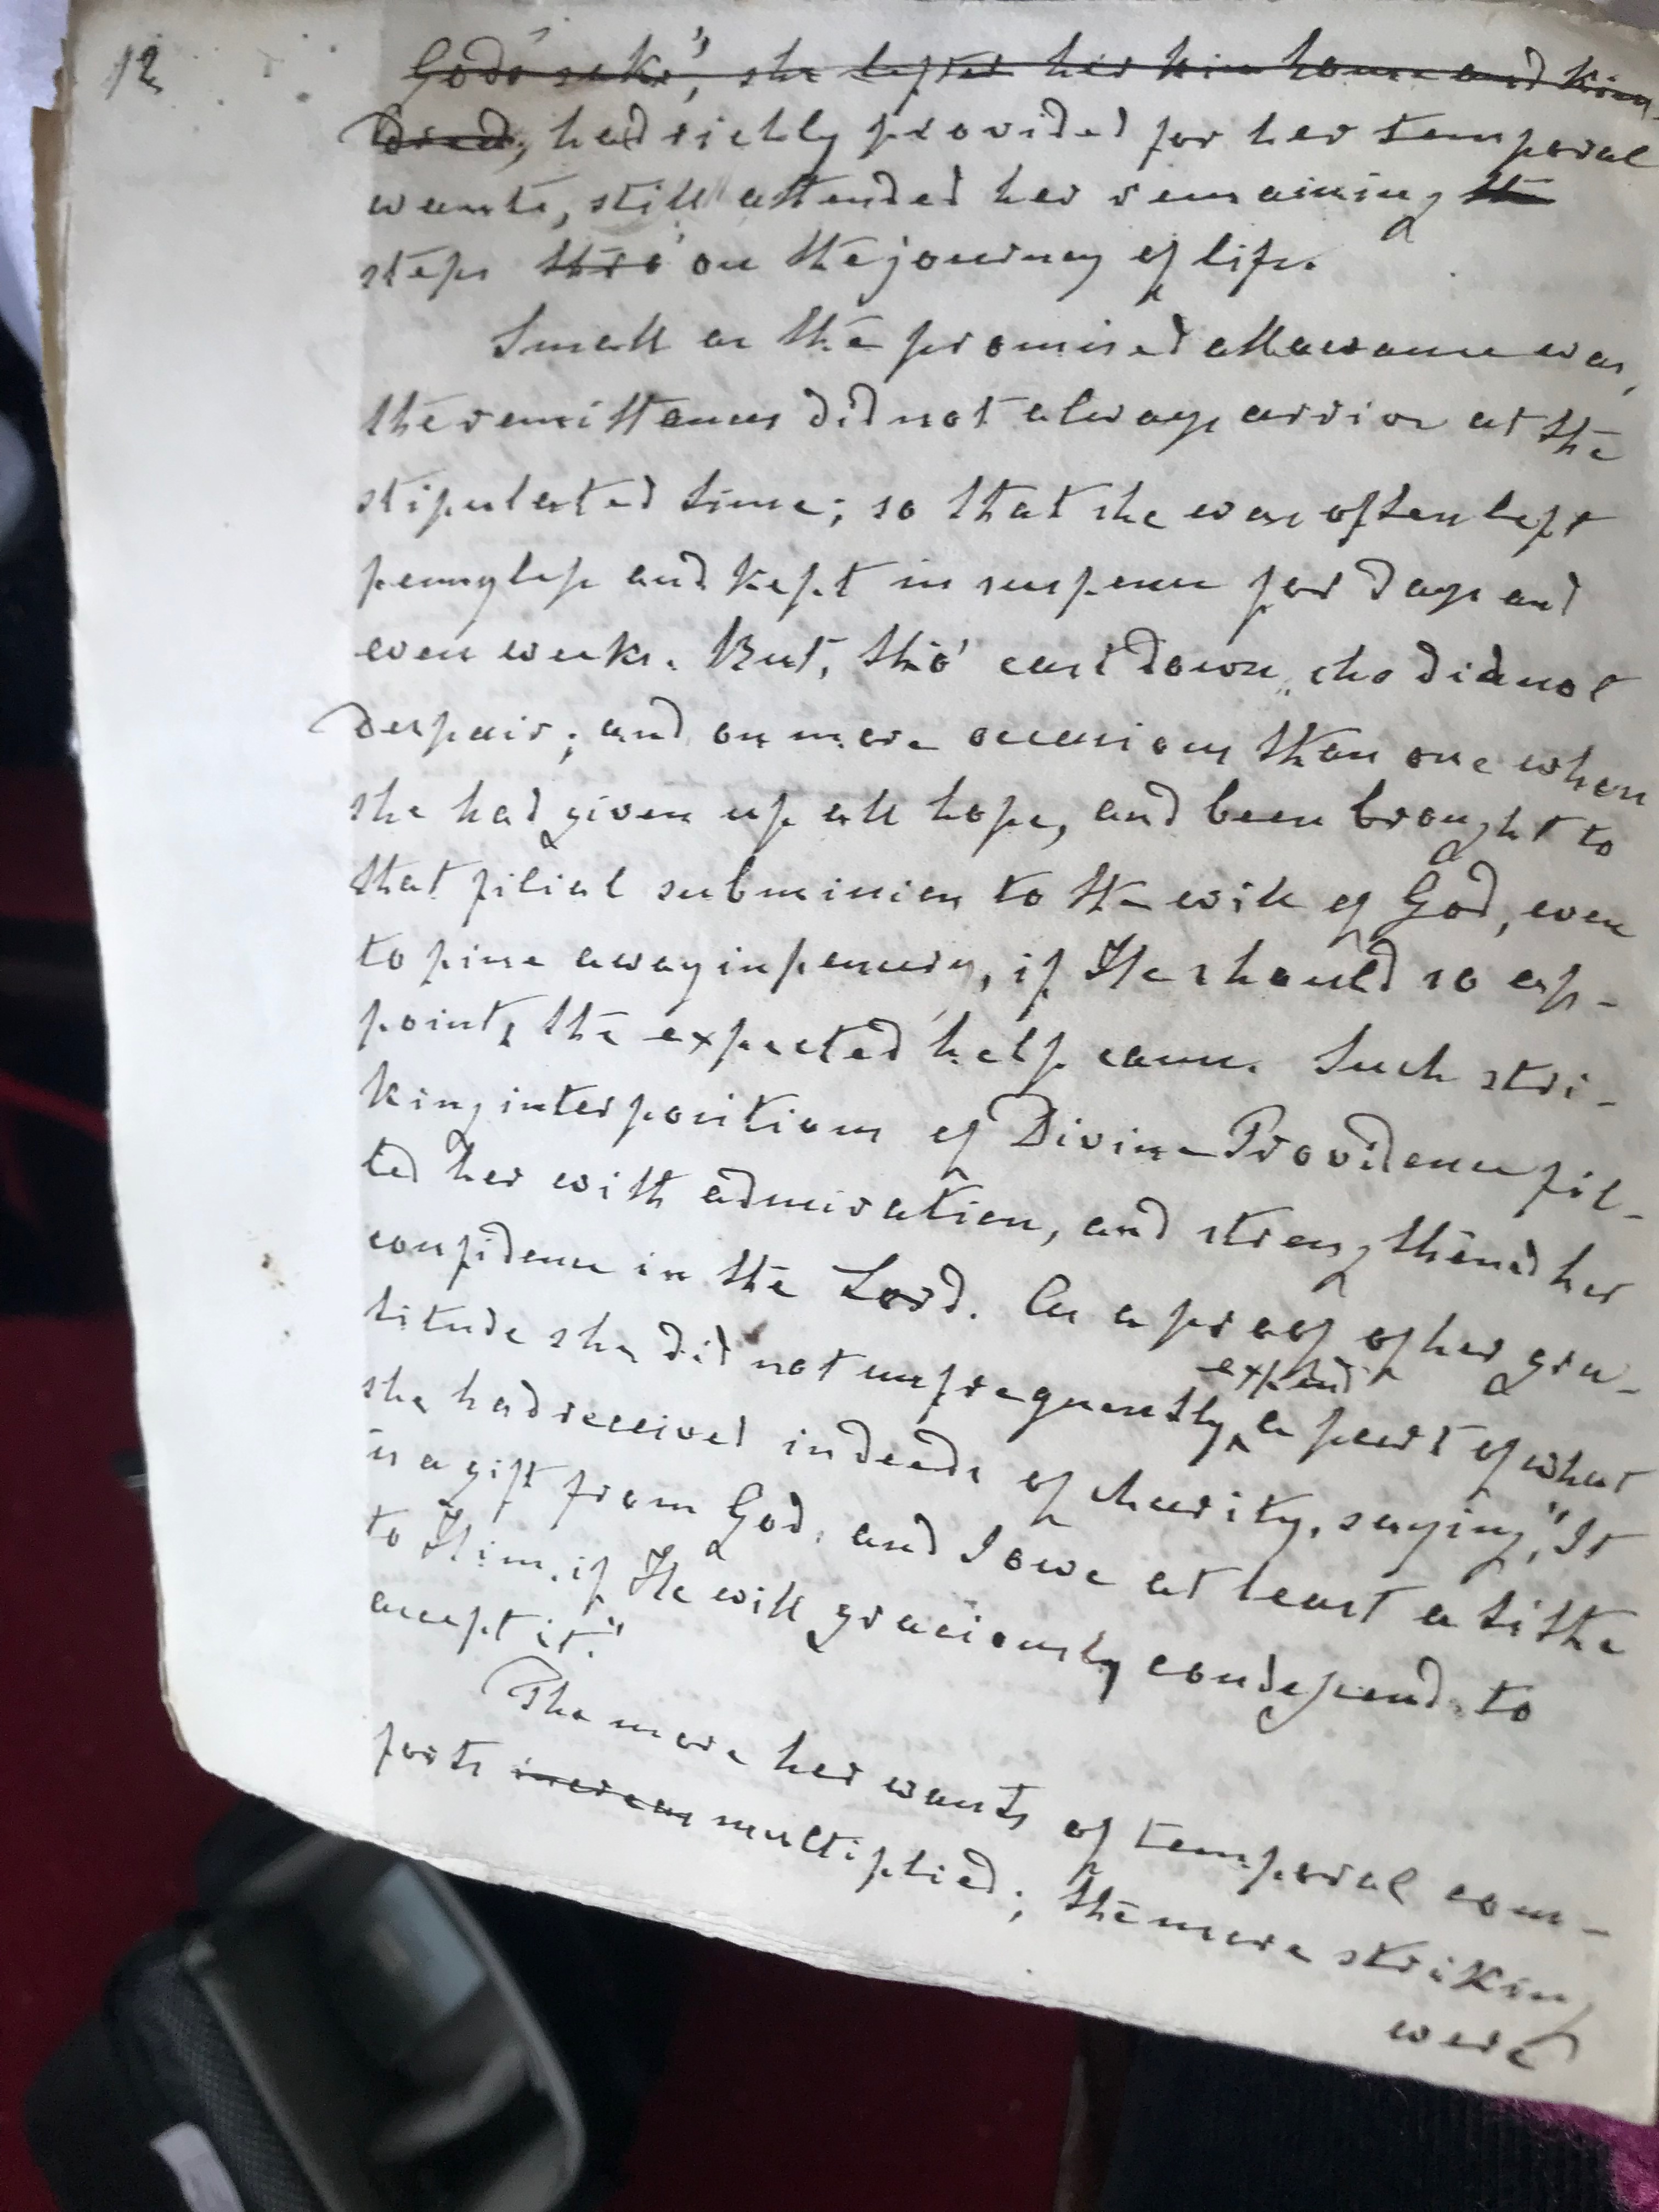 12
God's sake", she left her kin home and kin-
dred, had richly provided for her temporal
wants, still attended her remaining st
steps thro' on the journey of life.
Small as the promised allowance was,
the remittances did not always arrive at the
stipulated time; so that she was often left
pennyless and kept in suspense for days and
even weeks. But, tho' cast down, she did not
despair; and on more occasions than one when
she had given up all hope, and been brought to
that filial submission to the will of God, even
to pine away in penury, if He should so ap-
point, the expected help came. Such stri-
king interpositions of Divine Providence fil-
led her with admiration, and strengthened her
confidence in the Lord. As a proof of her gra-
titude she did not unfrequently expend a part of what
she had received in deeds of charity, saying, "It
is a gift from God, and I owe at least a tithe
to Him, if He will graciously condescend to
accept it."
The more her wants of temporal com-
forts increas multiplied; the more striking
were